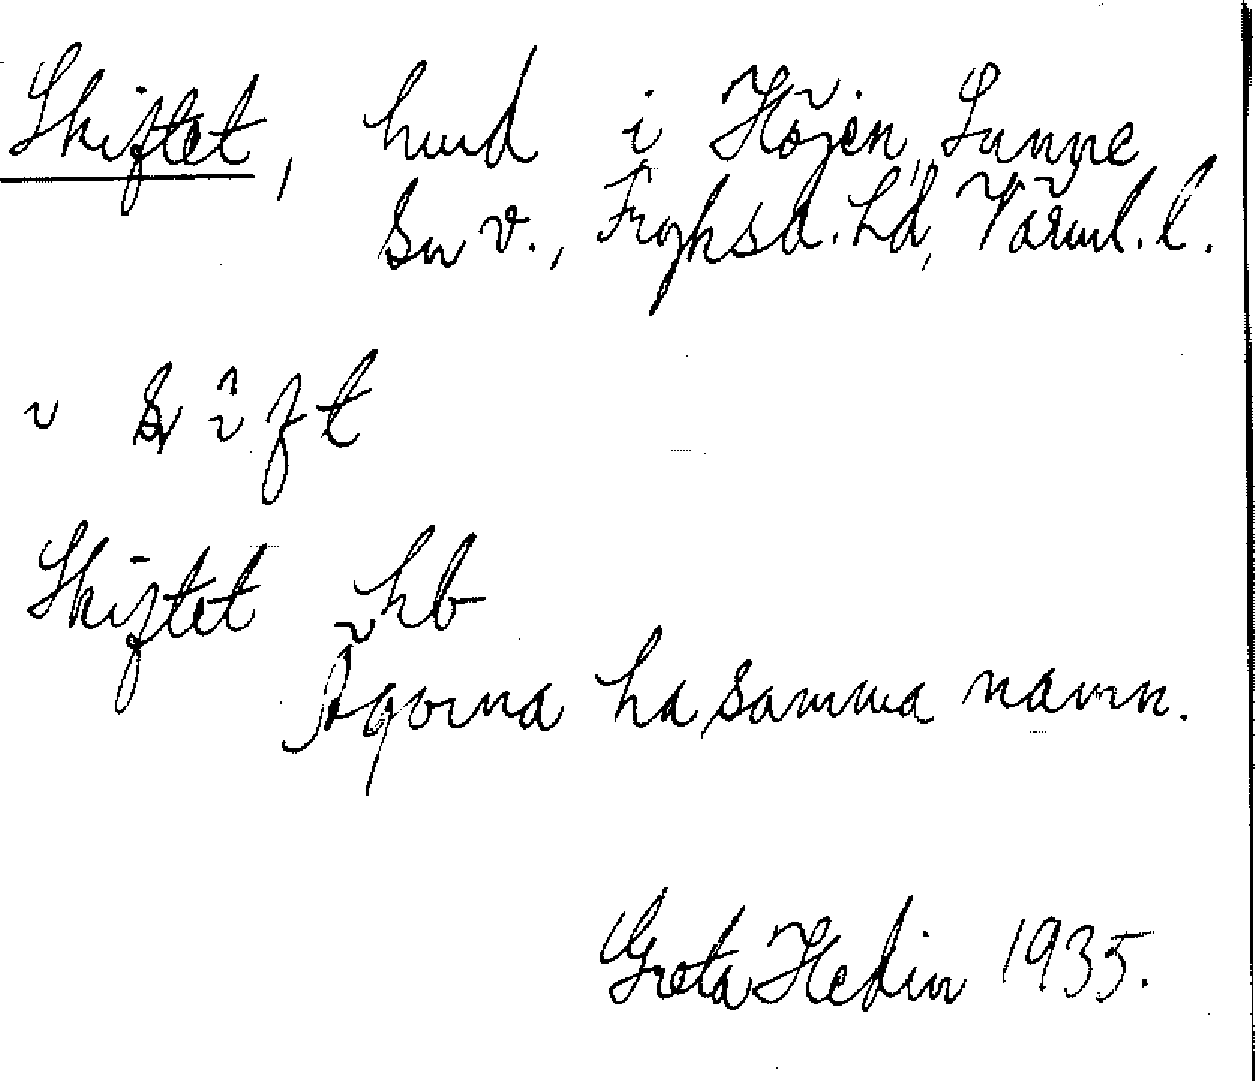 Skiftet, hmd i Höjen, Sunne
sn v., Fryksd. hd, Värml. l.
Skiftet hb
Ägorna ha samma namn.
Greta Hedin 1935.